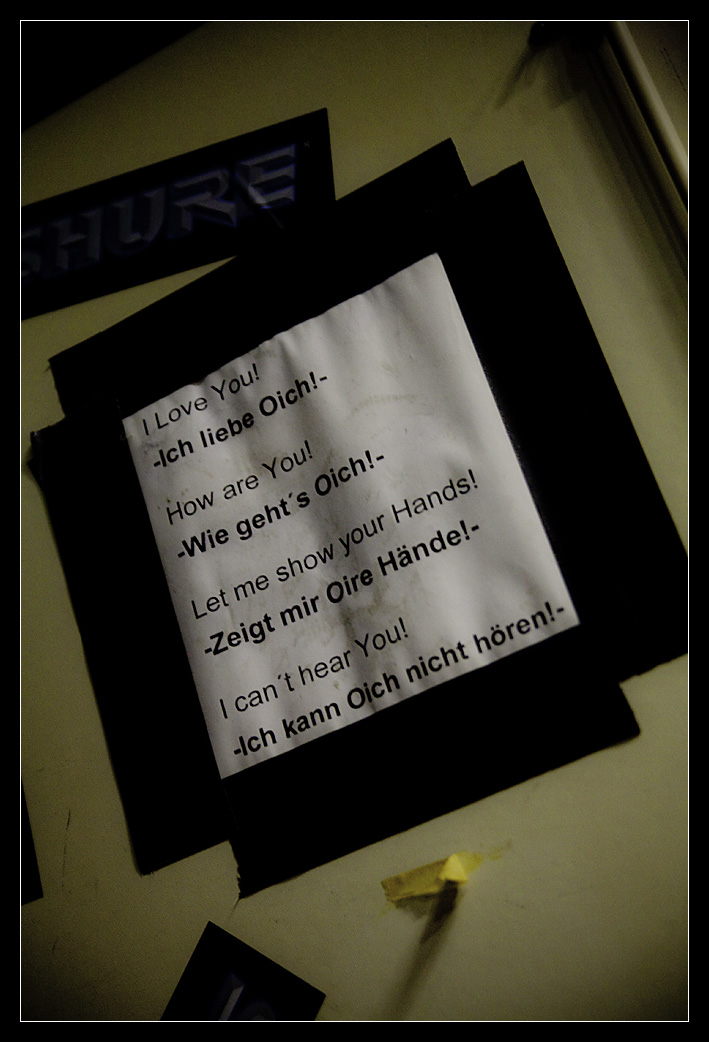 SHURE
I Love You!
-Ich liebe Oich!-
How are You!
-Wie geht´s Oich!-
Let me show your Hands!
-Zeigt mir Oire Hände!-
I can´t hear You!
-Ich kann Oich nicht hören!-